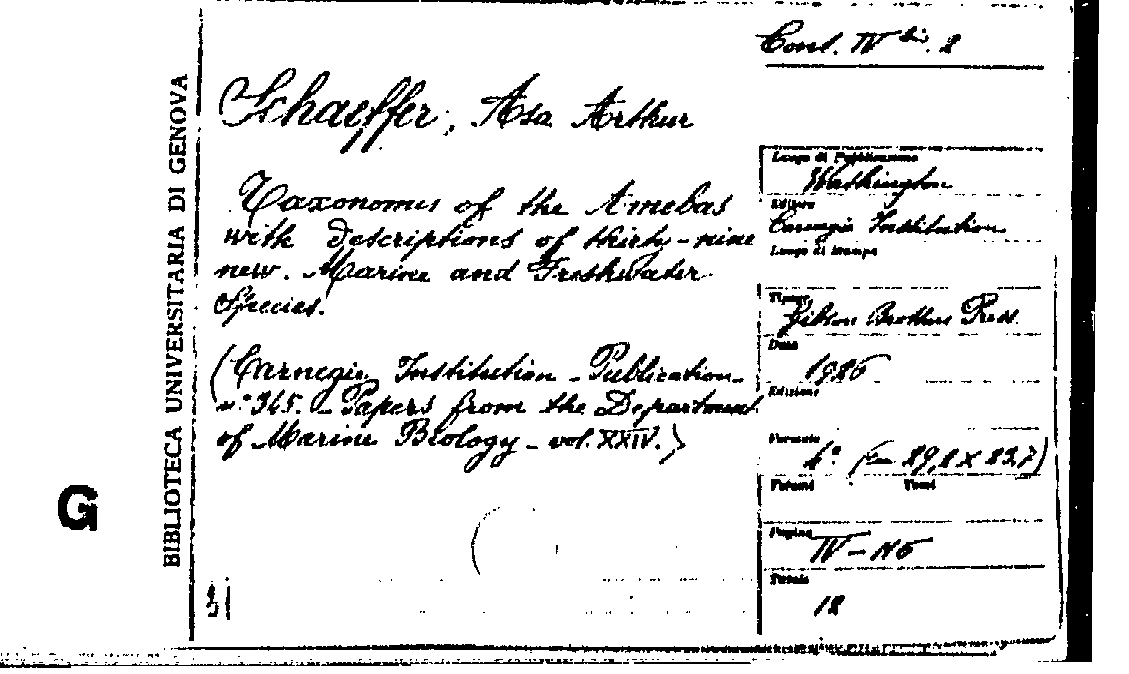 Cont. IV bis. 2
Schaeffer, Asa Arthur
Taxonomus of the Amebas
with descriptions of thirty-nine
new. Marine and Freshwater
Species.
(Carnegie Institution - Publication
n° 345. - Papers from the Department
of Marine Biology - vol. XXIV.)
31
G
BIBLIOTECA UNIVERSITARIA DI GENOVA
Luogo di Pubblicazione
Washington
Editore
Carnegie Institution
Luogo di stampa
Tipogr.
Gibson Brothers Press.
Data
1926
Edizione
Formato
4° (cm 29,2 X 23,7)
Volumi Tomi
Pagine
IV - 116
Tavole
12